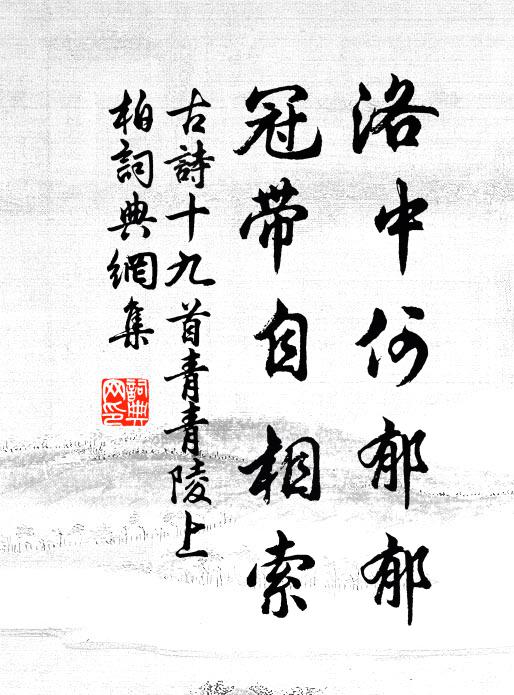 洛中何郁郁
冠帶自相索
古詩十九首青青陵上
柏詞典網集
詞典網印